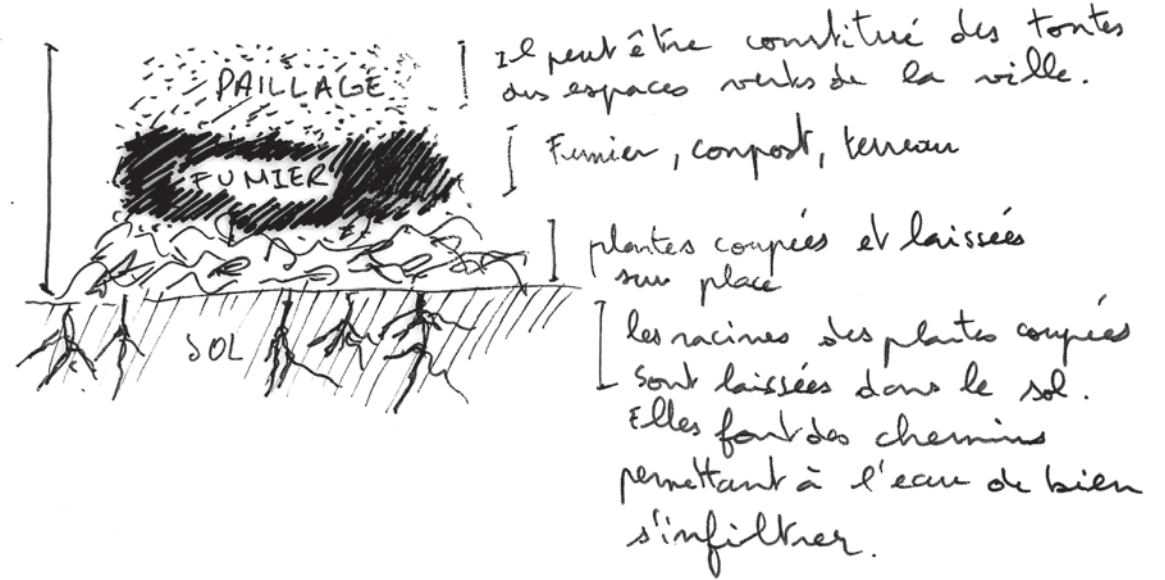 PAILLAGE
Il peut être constitué des tontes
des espaces verts de la ville.
FUMIER
Fumier, compost, terreau
plantes coupées et laissées
sur place
SOL
les racines des plantes coupées
sont laissées dans le sol.
Elles font des chemins
permettant à l'eau de bien
s'infiltrer.